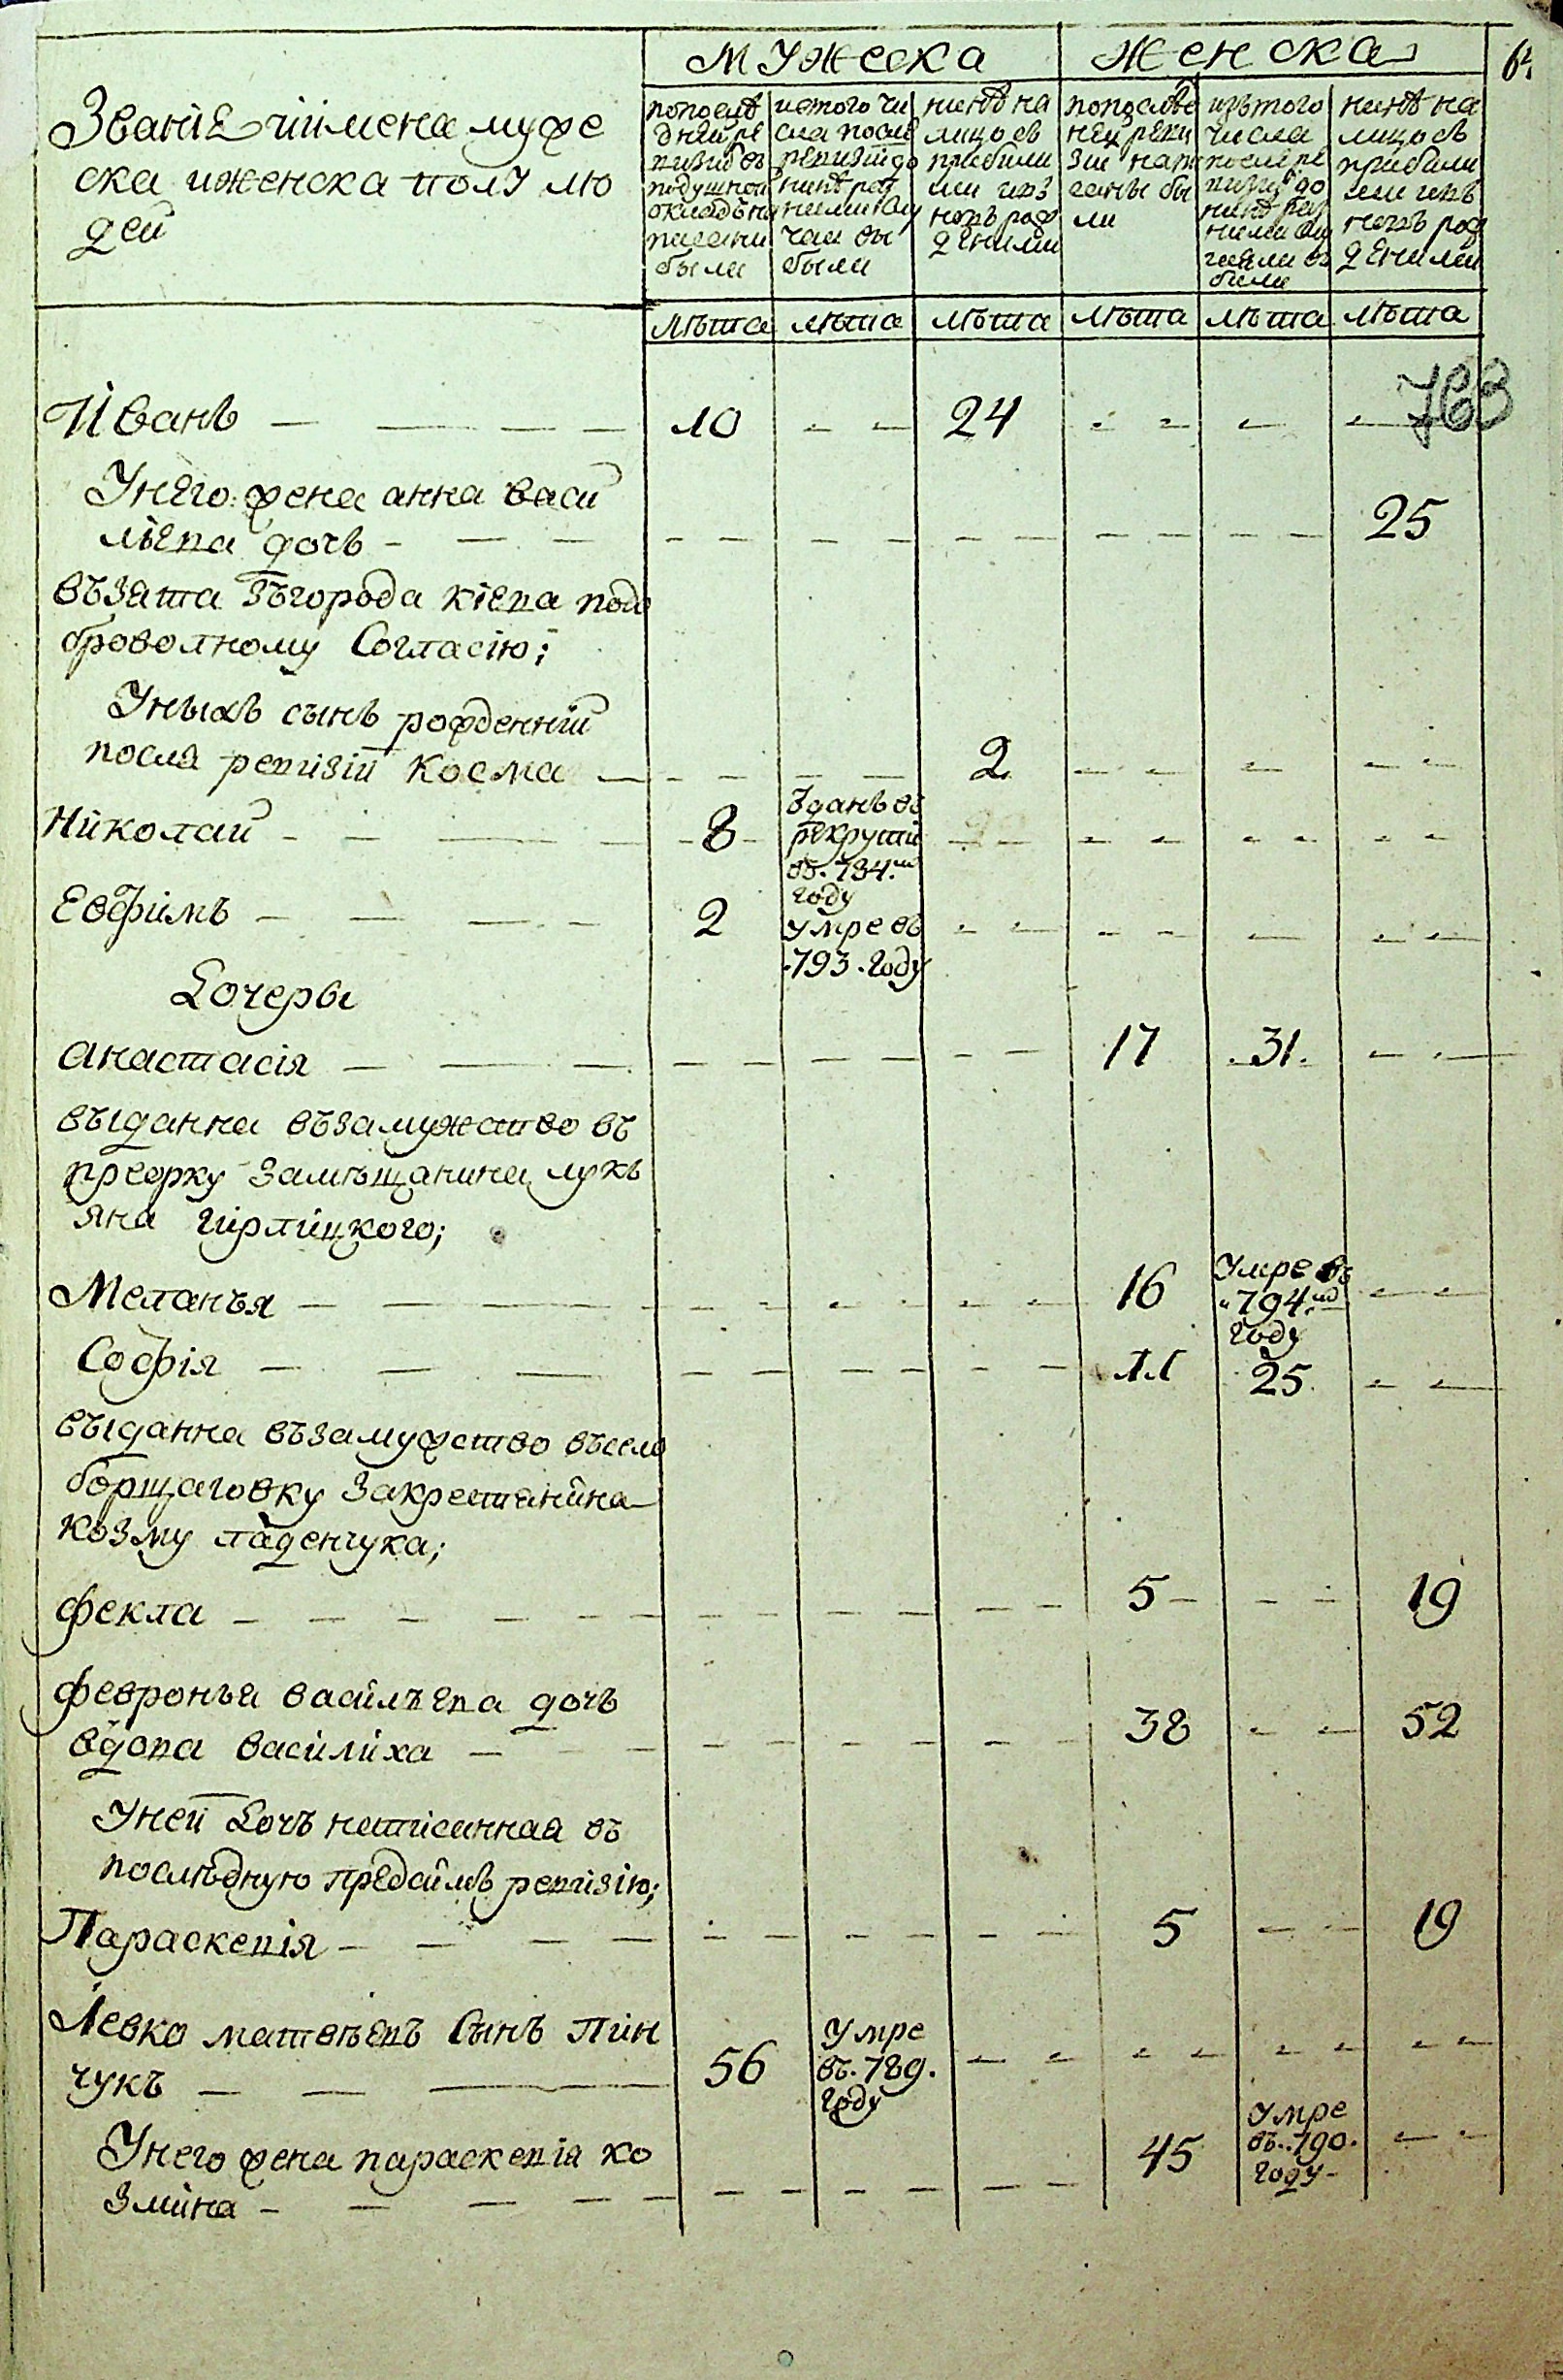 Мужеска Женска
Званіе иимена муже
ска иженска полу лю
дей
попослѣ
дней ре
визіи въ
подушной
окладъ на
писани
были
истого чи
сла после
ревизіи до
нинѣ раз
ними слу
чаи вы
были
нинѣ на
лицо съ
прибили
ми и въ
новъ рож
дenими
попослѣд
ней реви
зіи напи
саны бы
ли
изтого
числа
послѣ ре
визіи до
нинѣ раз
ними слу
чаями вы
были
нинѣ на
лицо съ
прибили
ми и въ
новъ рож
деними
лѣта лѣта лѣта лѣта лѣта лѣта
763
Иванъ 10 24
Унего жена анна васи
лѣева дочь 25
възята зъгорода кіева подо
броволному согласію;
Унихъ сынъ рожденній
посля ревизіи Косма 2
Николай 8
Зданъ въ
рекрути
въ 794.м
году
Евфимъ 2
умре въ
793 году
Дочеры
анастасія 17 31
выданна възамужство въ
преорку замѣщанина лукъ
яна гирлицкого;
Меланья 16
Умре въ
794.м
году
Софія 11 25
выданна възамужство въсело
борщаговку закрестянина
козму ладенчука;
фекла 5 19
февронья василъева дочъ
вдова василиха 38 52
Уней дочъ написанная въ
послѣдную предсимъ ревизію;
Параскевія 5 19
Левко матвѣевъ сынъ Пин
чукъ 56
Умре
въ 789.
году
Унего жена параскевія ко
змина 45
Умре
въ 790.
году